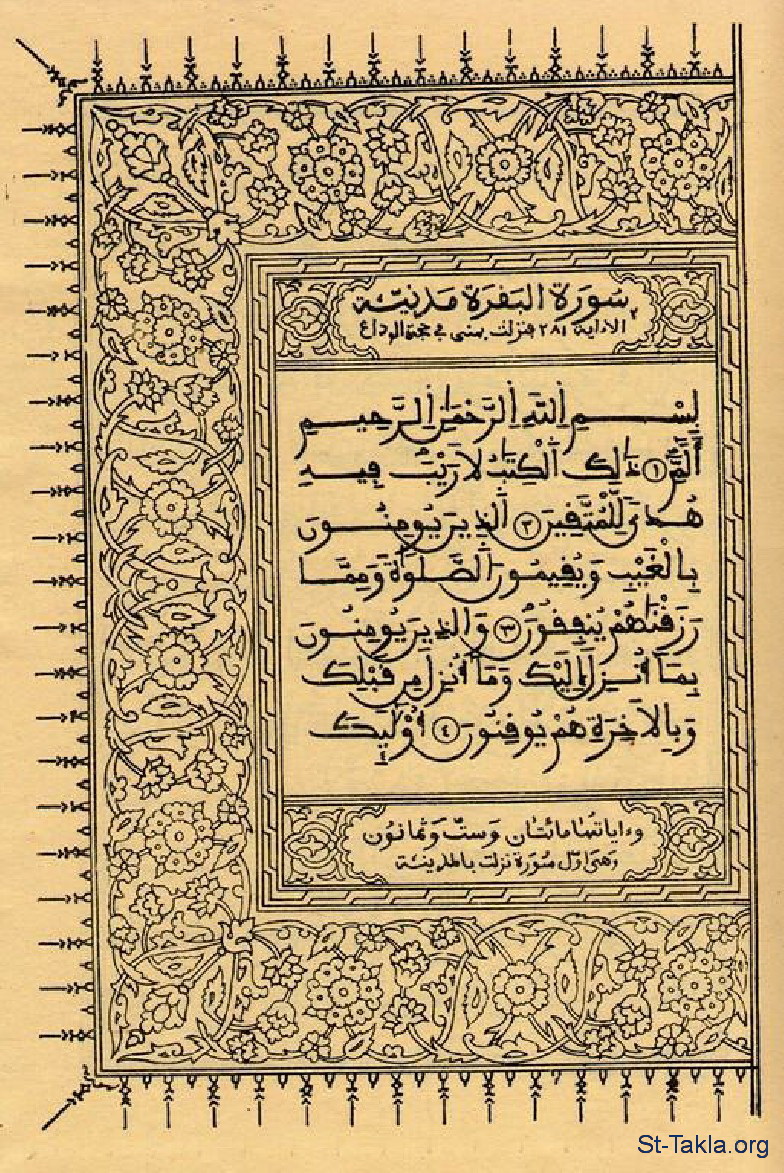 سُورَةُ الْبَقَرَةِ مَدَنِيَّة ٢
الا ءاية ٢٨١ فنزلت بمنى في حجة الوداع
بِسْمِ اِللَّهِ اِلرَّحْمَٰنِ اِلرَّحِيمِ
أَلَٓمِّٓ ١ ذَٰلِكَ اَلْكِتَٰبُ لَا رَيْبَ فِيهِ
هُدىً لِّلْمُتَّقِينَ ٢ اَلذِينَ يُومِنُونَ
بِالْغَيْبِ وَيُقِيمُونَ اَلصَّلَوٰةَ وَمِمَّا
رَزَقْنَٰهُمْ يُنفِقُونَ ٣ وَالذِينَ يُومِنُونَ
بِمَا أُنزِلَ إِلَيْكَ وَمَا أُنزِلَ مِن قَبْلِكَ
وَبِالَاخِرَةِ هُمْ يُوقِنُونَ ٤ أُوْلَٰٓئِكَ
وءاياتها مائتان وست وثمانون
وهي أول سورة نزلت بالمدينة
St-Takla.org